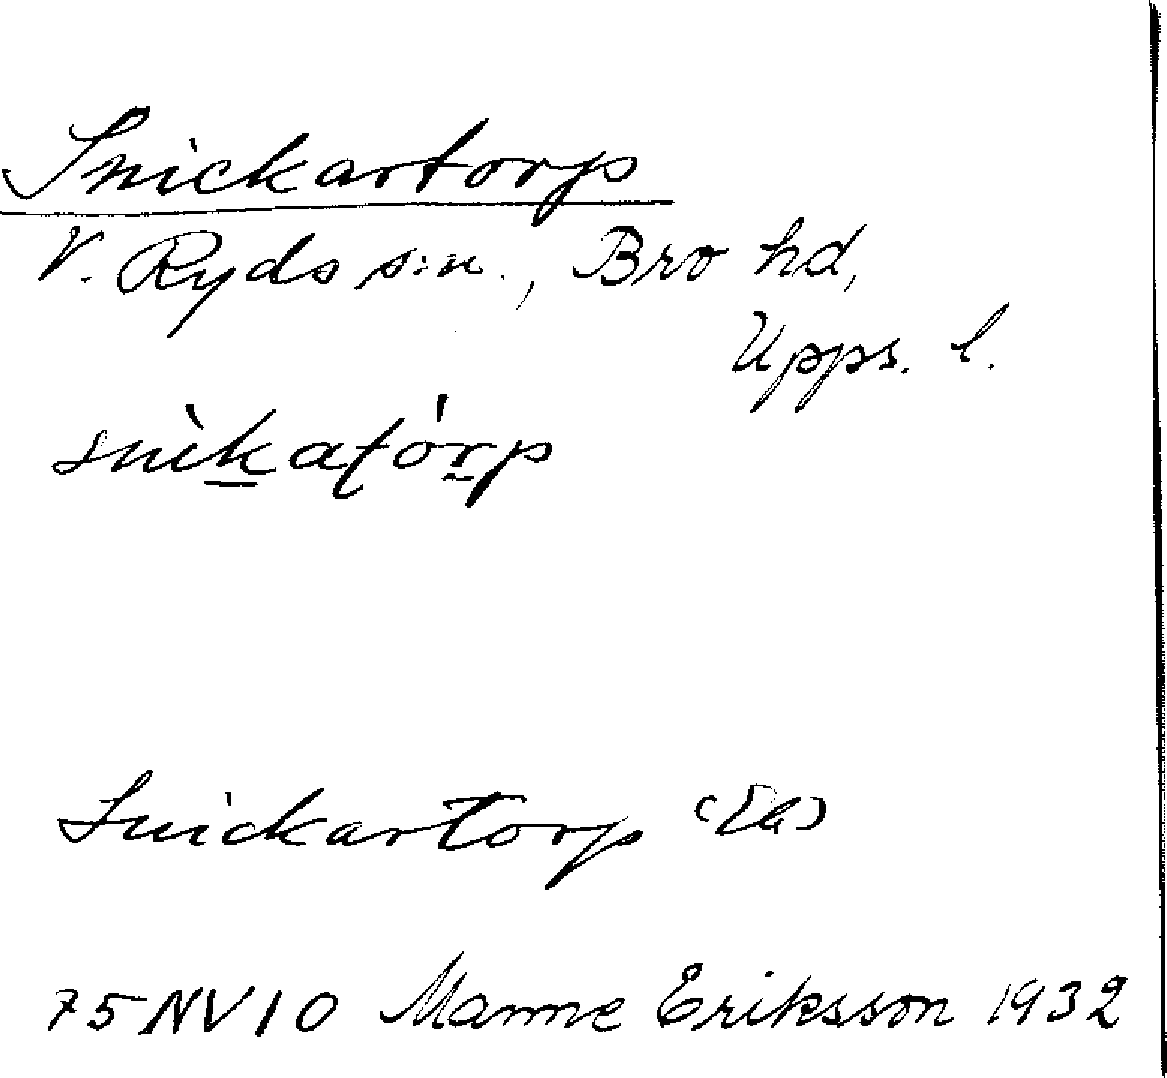 Snickartorp
V. Ryds s:n., Bro hd,
Upps. l.
snìkatórp
Snickartorp
75NV10 Manne Eriksson 1932